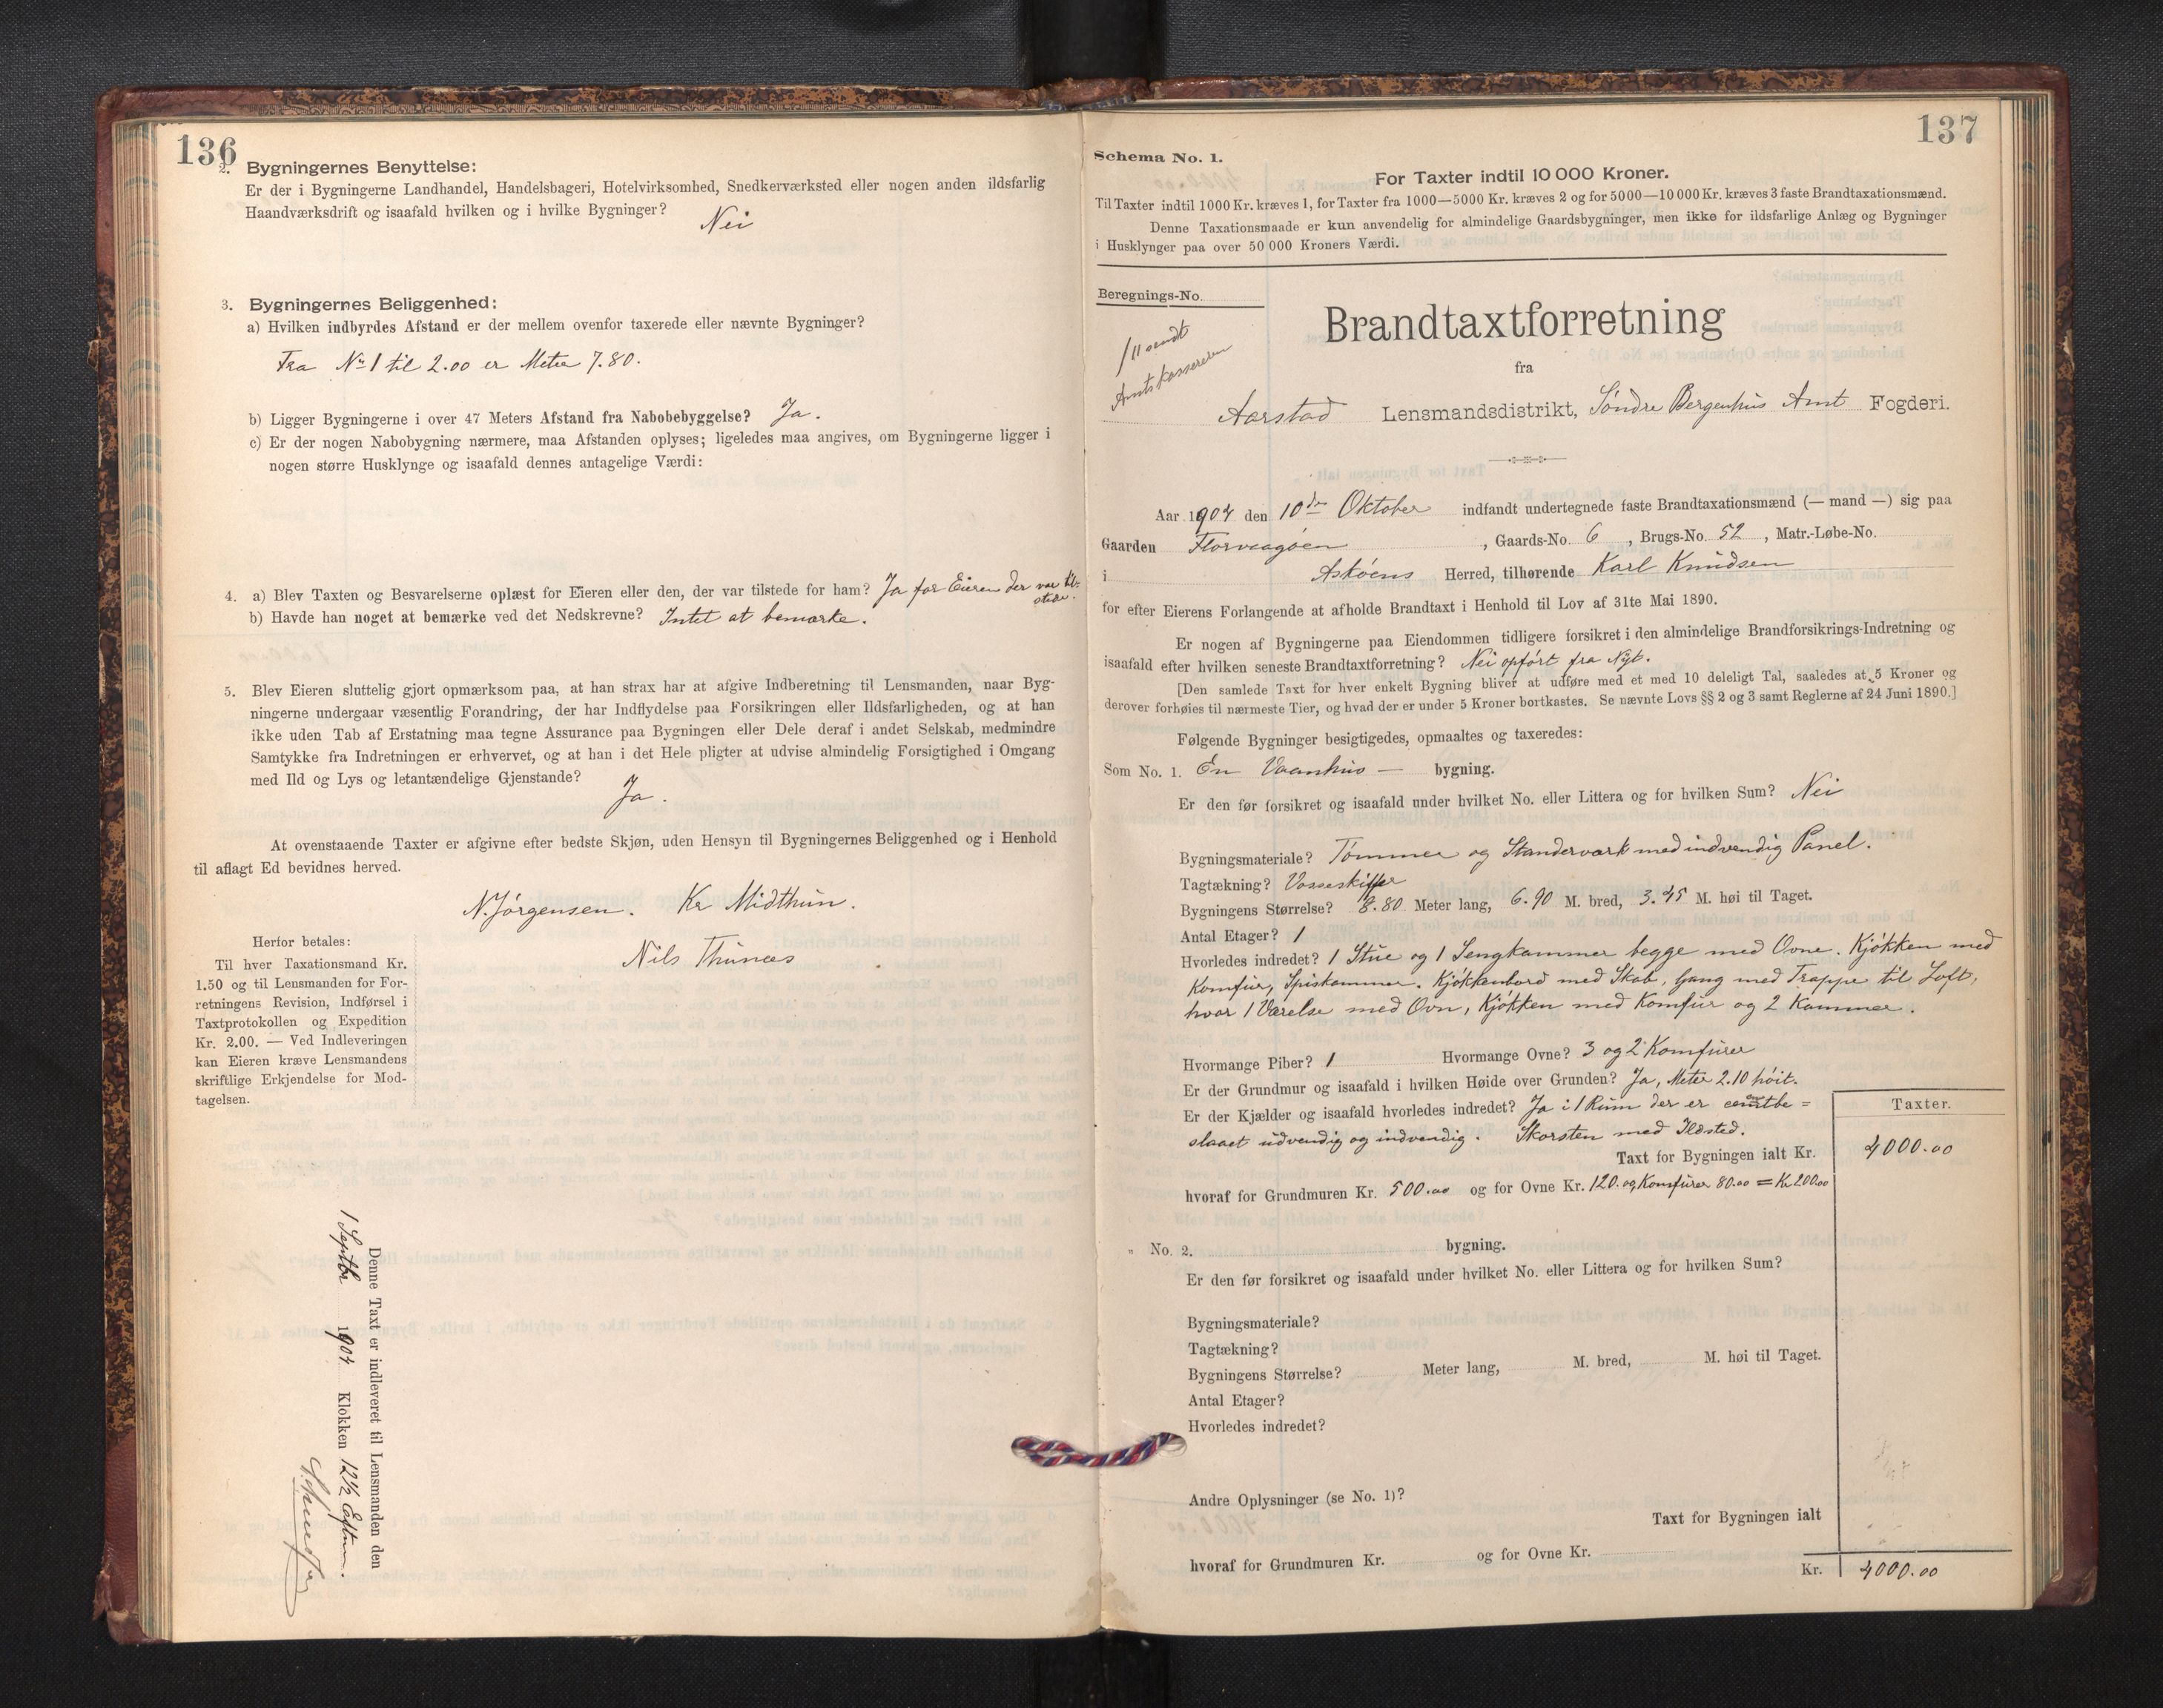 136
2. Bygningernes Benyttelse:
Er der i Bygningerne Landhandel, Handelsbageri, Hotelvirksomhed, Snedkerværksted eller nogen anden ildsfarlig
Haandværksdrift og isaafald hvilken og i hvilke Bygninger?
Nei
3. Bygningernes Beliggenhed:
a) Hvilken indbyrdes Afstand er der mellem ovenfor taxerede eller nævnte Bygninger?
Fra No 1 til 2.00 er Meter 7.80.
b) Ligger Bygningerne i over 47 Meters Afstand fra Nabobebyggelse? Ja.
c) Er der nogen Nabobygning nærmere, maa Afstanden oplyses; ligeledes maa angives, om Bygningerne ligger i
nogen større Husklynge og isaafald dennes antagelige Værdi:
4. a) Blev Taxten og Besvarelserne oplæst for Eieren eller den, der var tilstede for ham? Ja for Eieren der var til-
stede.
b) Havde han noget at bemærke ved det Nedskrevne? Intet at bemærke.
5. Blev Eieren sluttelig gjort opmærksom paa, at han strax har at afgive Indberetning til Lensmanden, naar Byg-
ningerne undergaar væsentlig Forandring, der har Indflydelse paa Forsikringen eller Ildsfarligheden, og at han
ikke uden Tab af Erstatning maa tegne Assurance paa Bygningen eller Dele deraf i andet Selskab, medmindre
Samtykke fra Indretningen er erhvervet, og at han i det Hele pligter at udvise almindelig Forsigtighed i Omgang
med Ild og Lys og letantændelige Gjenstande?
Ja.
At ovenstaaende Taxter er afgivne efter bedste Skjøn, uden Hensyn til Bygningernes Beliggenhed og i Henhold
til aflagt Ed bevidnes herved.
N. Jörgensen. Kr Midthun.
Nils Thunæs
Herfor betales:
Til hver Taxationsmand Kr.
1.50 og til Lensmanden for For-
retningens Revision, Indførsel i
Taxtprotokollen og Expedition
Kr. 2.00. — Ved Indleveringen
kan Eieren kræve Lensmandens
skriftlige Erkjendelse for Mod-
tagelsen.
Denne Taxt er indleveret til Lensmanden den
1 Septbr 1904 Klokken 12½ Eftm.
137
Schema No. 1.
For Taxter indtil 10 000 Kroner.
Til Taxter indtil 1000 Kr. kræves 1, for Taxter fra 1000—5000 Kr. kræves 2 og for 5000—10 000 Kr. kræves 3 faste Brandtaxationsmænd.
Denne Taxationsmaade er kun anvendelig for almindelige Gaardsbygninger, men ikke for ildsfarlige Anlæg og Bygninger
i Husklynger paa over 50 000 Kroners Værdi.
Beregnings-No.
Amtskasseren
Brandtaxtforretning
fra
Aarstad Lensmandsdistrikt, Söndre Bergenhus Amt Fogderi.
Aar 1904 den 10de Oktober indfandt undertegnede faste Brandtaxationsmænd (— mand —) sig paa
Gaarden Florvaagöen, Gaards-No. 6, Brugs-No. 52, Matr.-Løbe-No.
i Asköens Herred, tilhørende Karl Knudsen
for efter Eierens Forlangende at afholde Brandtaxt i Henhold til Lov af 31te Mai 1890.
Er nogen af Bygningerne paa Eiendommen tidligere forsikret i den almindelige Brandforsikrings-Indretning og
isaafald efter hvilken seneste Brandtaxtforretning? Nei opfört fra Nyt.
[Den samlede Taxt for hver enkelt Bygning bliver at udføre med et med 10 deleligt Tal, saaledes at 5 Kroner og
derover forhøies til nærmeste Tier, og hvad der er under 5 Kroner bortkastes. Se nævnte Lovs §§ 2 og 3 samt Reglerne af 24 Juni 1890.]
Følgende Bygninger besigtigedes, opmaaltes og taxeredes:
Som No. 1. En Vaanhus — bygning.
Er den før forsikret og isaafald under hvilket No. eller Littera og for hvilken Sum? Nei
Bygningsmateriale? Tömmer og Standerværk med indvendig Panel.
Tagtækning? Vosseskiffer
Bygningens Størrelse? 8.80 Meter lang, 6.90 M. bred, 3.45 M. høi til Taget.
Antal Etager? 1
Hvorledes indredet? 1 Stue og 1 Sengkammer begge med Ovne. Kjökken med
Komfur, Spiskammer. Kjökkenbord med Skab, Gang med Trappe til Loft,
hvor 1 Værelse med Ovn, Kjökken med Komfur og 2 Kammer.
Hvormange Piber? 1 Hvormange Ovne? 3 og 2 Komfurer
Er der Grundmur og isaafald i hvilken Høide over Grunden? Ja, Meter 2.10 höit.
Er der Kjælder og isaafald hvorledes indredet? Ja i 1 Rum der er cementbe=
slaaet udvendig og indvendig. Skorsten med Ildsted.
Taxter.
Taxt for Bygningen ialt Kr. 4000.00
hvoraf for Grundmuren Kr. 500.00 og for Ovne Kr. 120. og Komfurer 80.00 = Kr 200.00
" No. 2. bygning.
Er den før forsikret og isaafald under hvilket No. eller Littera og for hvilken Sum?
Bygningsmateriale?
Tagtækning?
Bygningens Størrelse? Meter lang, M. bred, M. høi til Taget.
Antal Etager?
Hvorledes indredet?
Andre Oplysninger (se No. 1)?
Taxt for Bygningen ialt
hvoraf for Grundmuren Kr. og for Ovne Kr.
Kr. 4000.00